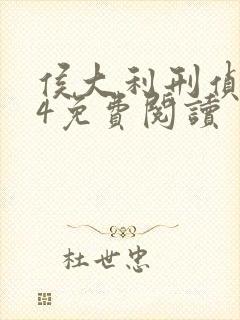 侯大利刑偵
4免費閱讀
杜世忠